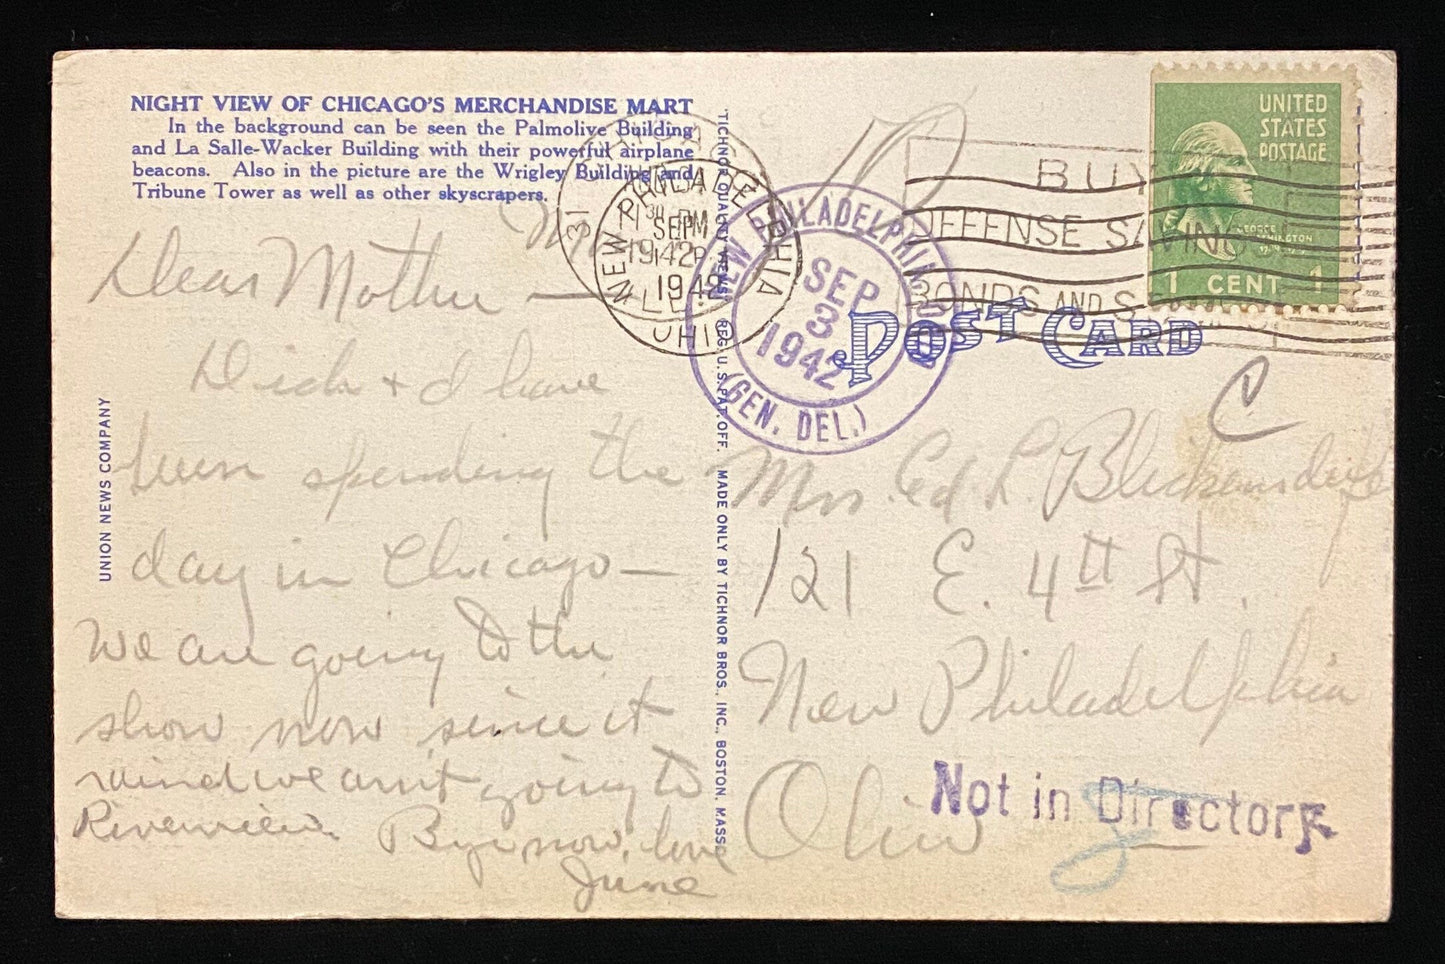 NIGHT VIEW OF CHICAGO'S MERCHANDISE MART
In the background can be seen the Palmolive Building
and La Salle-Wacker Building with their powerful airplane
beacons. Also in the picture are the Wrigley Building and
Tribune Tower as well as other skyscrapers.
Dear Mother —
Dick + I have
been spending the
day in Chicago —
We are going to the
show now since it
rained we aren't going to
Riverview. Bye now, love
June
UNION NEWS COMPANY
"TICHNOR QUALITY VIEWS" REG. U. S. PAT. OFF. MADE ONLY BY TICHNOR BROS., INC., BOSTON, MASS.
NEW PHILADELPHIA
SEP
1942
OHIO
NEW PHILADELPHIA, O.
SEP
3
1942
(GEN. DEL.)
BUY
DEFENSE SAVINGS
BONDS AND STAMPS
UNITED
STATES
POSTAGE
GEORGE
WASHINGTON
1 CENT 1
POST CARD
C
Mrs. Ed L. Blickensdorfer
121 E. 4th St.
New Philadelphia
Ohio
Not in Directory.